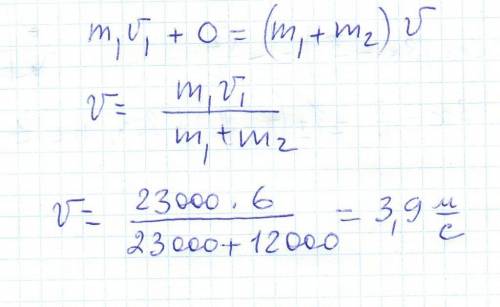 m₁v₁ + 0 = (m₁+m₂) v
v = m₁v₁ / m₁+m₂
v = 23000 · 6 / 23000+12000 = 3,9 м/с